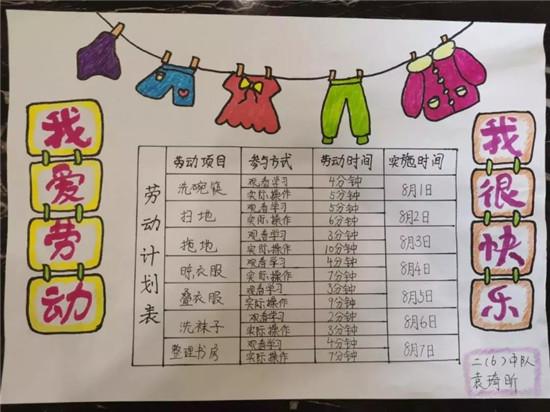 我爱劳动
我很快乐
劳动计划表
劳动项目 参与方式 劳动时间 实施时间
洗碗筷 观看学习 4分钟 8月1日
实际操作 5分钟
扫地 观看学习 5分钟 8月2日
实际操作 6分钟
拖地 观看学习 3分钟 8月3日
实际操作 10分钟
晾衣服 观看学习 4分钟 8月4日
实际操作 7分钟
叠衣服 观看学习 3分钟 8月5日
实际操作 9分钟
洗袜子 观看学习 2分钟 8月6日
实际操作 3分钟
整理书房 观看学习 4分钟 8月7日
实际操作 7分钟
二(6)中队
袁琦昕